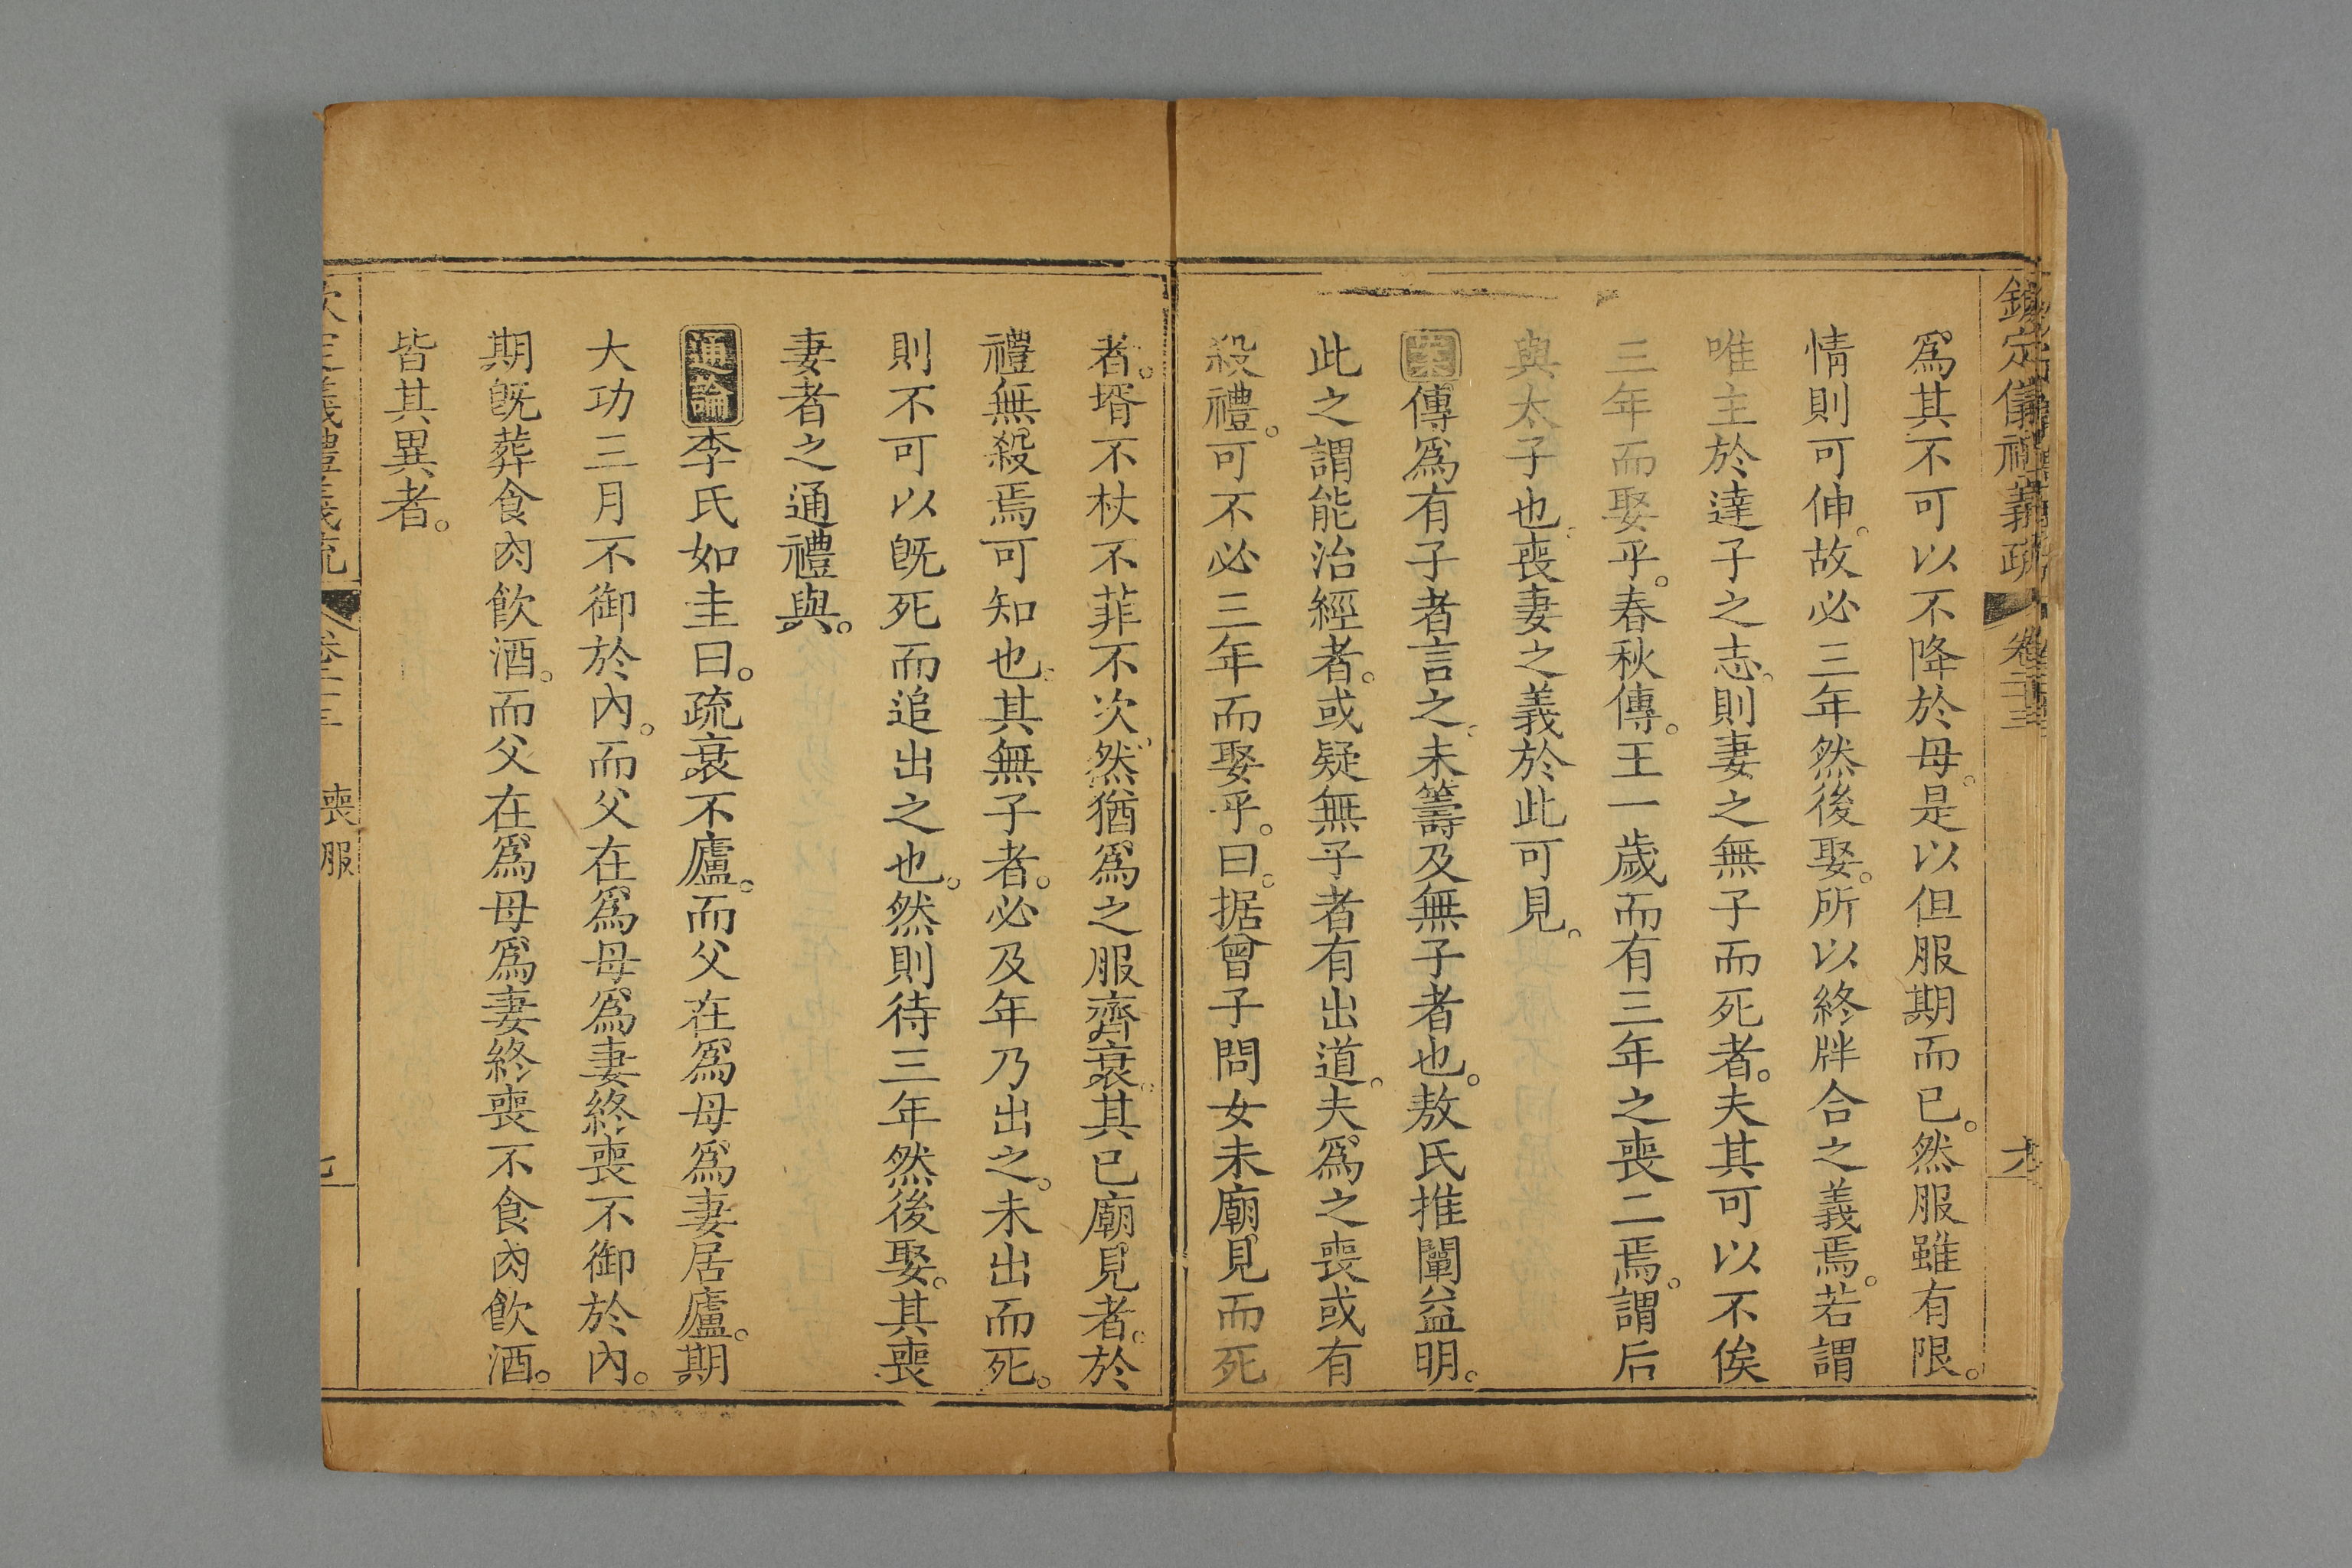 欽定儀禮義疏 卷二十三
爲其不可以不降於母。是以但服期而已。然服雖有限。
情則可伸。故必三年然後娶。所以終牉合之義焉。若謂
唯主於達子之志。則妻之無子而死者。夫其可以不俟
三年而娶乎。春秋傳。王一歲而有三年之喪二焉。謂后
與太子也。喪妻之義於此可見。
案傳爲有子者言之。未籌及無子者也。敖氏推闡益明。
此之謂能治經者。或疑無子者有出道。夫爲之喪或有
殺禮。可不必三年而娶乎。曰。据曾子問女未廟見而死
者。壻不杖不菲不次。然猶爲之服齊衰。其已廟見者。於
禮無殺焉可知也。其無子者。必及年乃出之。未出而死。
則不可以旣死而追出之也。然則待三年然後娶。其喪
妻者之通禮與。
通論李氏如圭曰。疏衰不廬。而父在爲母爲妻居廬。期
大功三月不御於內。而父在爲母爲妻終喪不御於內。
期旣葬食肉飲酒。而父在爲母爲妻終喪不食肉飲酒。
皆其異者。
欽定儀禮義疏 卷二十三 喪服